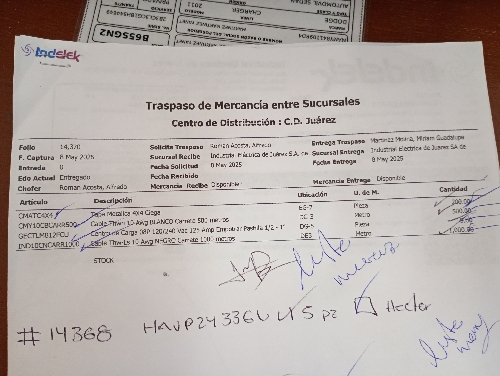 B6SSGN2
CHARGER
AUTOMOVIL SEDAN
DODGE
Indelek
Traspaso de Mercancía entre Sucursales
Centro de Distribución : C.D. Juárez
Folio 14,370 Solicita Traspaso Roman Acosta, Alfredo Entrega Traspaso Martinez Molina, Miriam Guadalupe
F. Captura 8 May 2025 Sucursal Recibe Industrial Eléctrica de Juárez S.A. de Sucursal Entrega Industrial Eléctrica de Juárez SA de
Entrada 0 Fecha Solicitud 8 May 2025 Fecha Entrega 8 May 2025
Edo Actual Entregado Fecha Recibido
Chofer Roman Acosta, Alfredo Mercancia Recibe Disponible Mercancia Entrega Disponible
Artículo Descripción Ubicación U. de M. Cantidad
CMATC4X4 Tapa Metalica 4X4 Ciega EG-7 Pieza 200.00
CMY10CBCARR500 Cable Thwn 10 Awg BLANCO Carrete 500 metros Metro 500.00
Centro de Carga 08P 120/240 Vac 125 Amp Empotrar Pastilla 1/2 - 1" DG-5 Pieza
IND10CNCARR1000 Cable Thw-Ls 10 Awg NEGRO Carrete 1000 metros DE3 Metro 1,000.00
STOCK
#14368 HAVP24336U 5 pz Hector